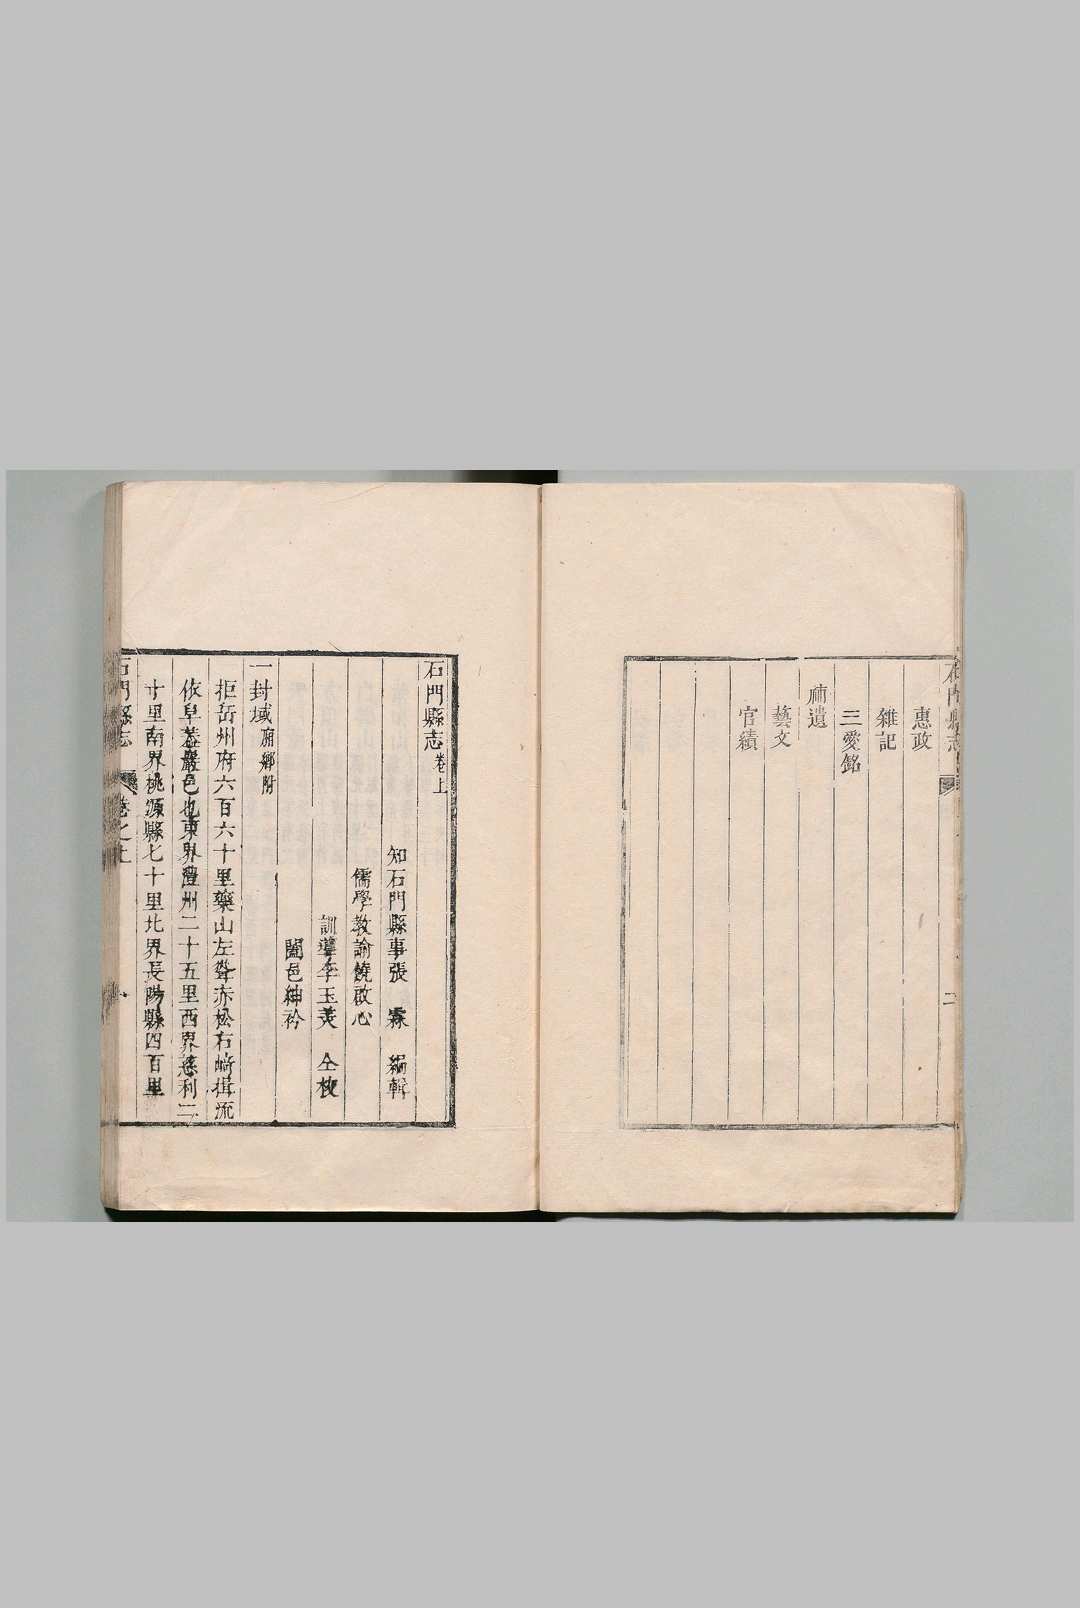 惠政
雜記
三愛銘
補遺
藝文
官績
石門縣志
二
石門縣志卷上
知石門縣事張霖 編輯
儒學教諭饒啟心
訓導李玉美 仝校
闔邑紳衿
一封域廂鄉附
拒岳州府六百六十里藥山左聳赤松右峙揖流
依阜葢巖邑也東界澧州二十五里西界慈利二
十里南界桃源縣七十里北界長陽縣四百里
石門縣志 卷之上